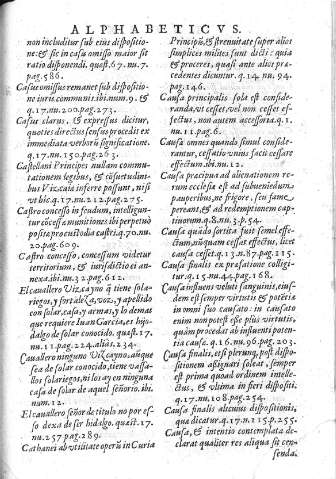 ALPHABETICVS.
non includitur sub eius dispositio-
ne: & sic in casu omisso maior sit
ratio disponendi. quæst. 67. nu. 7.
pag. 586.
Casus omissus remanet sub dispositio-
ne iuris communis. ibi. num. 9. &
q. 17. nu. 200. pag. 273.
Casus clarus, & expressus dicitur,
quoties directus sensus procedit ex
immediata verborũ significatione.
q. 17. nu. 150. pag. 263.
Castellani Principes nullam commu-
tationem legibus, & cõsuetudini-
bus Vizcaiæ inferre possunt, nisi
vt hic. q. 17. nu. 212. pag. 275.
Castro concesso in feudum, intelligun-
tur cõcessa munitiones ibi perpetuò
posita pro custodia castri. q. 70. nu.
20. pag. 609.
Castro concesso, concessum videtur
territorium, & iurisdictio ei an-
nexa. ibi. nu. 32. pag. 612.
El cauallero Vizcayno q̃ tiene sola-
riegos, y fortaleza, voz, y apellido
con solar, casa, y armas, y lo demas
que requiere Iuan Garcia, es hi-
dalgo de solar conocido. quæst. 17.
nu. 11. pag. 224. alias. 234.
Cauallero ninguno Vizcayno, aunque
sea de solar conocido, tiene vassa-
llos solariegos, ni los ay en ninguna
casa de solar de aquel señorio. ibi.
num. 12.
El cauallero señor de titulo no por es-
so dexa de ser hidalgo. quæst. 17.
nu. 257. pag. 289.
Cathanei ab vtilitate operũ in Curia
Principũ, & strenuitate super alios
simplices milites sunt dicti: quia
& proceres, quasi ante alios præ-
cedentes dicuntur. q. 14. nu. 94.
pag. 146.
Causa principalis sola est conside-
randa, vt esses, vel non esses ef-
fectus, non autem accessoria. q. 1.
nu. 11. pag. 6.
Causæ omnes quando simul conside-
rantur, cessatio vnius facit cessare
effectum. ibi. nu. 12.
Causa præcipua ad alienationem re-
rum ecclesiæ est ad subueniendum
pauperibus, ne frigore, seu fame
pereant, & ad redemptionem cap-
tiuorum. q. 8. nu. 3. p. 54.
Causa quãdo sortita fuit semel effec-
tum, nũquam cessas effectus, licet
causa cesset. q. 13. nu. 87. pag. 115.
Causa finalis ex præfatione colligi-
tur. q. 15. nu. 44. pag. 168.
Causa influens velut sanguinis, eius-
dem est semper virtutis & potẽtiæ
in omni suo causato: in causato
enim non potest esse plus virtutis,
quàm procedat ab influentis poten-
tia causa. q. 16. nu. 96. pag. 203.
Causa finalis, etsi plerunq; post dispo-
sitionem assignari soleat, semper
est prima quoad ordinem intellec-
tus, & vltima in fieri dispositi.
q. 17. nu. 108. pag. 254.
Causa finalis alicuius dispositionis,
quæ dicatur. q. 17. nu. 115. p. 255.
Causa, & intentio contemplata de-
clarat qualiter res aliqua sit cen-
senda.